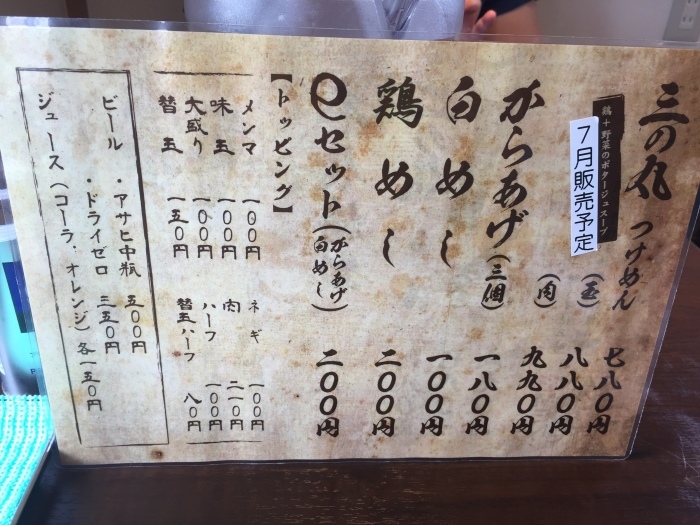 三の丸 つけめん 七八〇円
鶏+野菜のポタージュスープ
7月販売予定
(玉) 八八〇円
(肉) 九九〇円
からあげ(三個) 一八〇円
白めし 一〇〇円
鶏めし 二〇〇円
eセット(からあげ 白めし) 二〇〇円
【トッピング】
メンマ 一〇〇円
味玉 一〇〇円
大盛り 一〇〇円
替玉 一五〇円
ネギ 一〇〇円
肉 二一〇円
ハーフ 一〇〇円
替玉ハーフ 八〇円
ビール ・アサヒ中瓶 五〇〇円
・ドライゼロ 三五〇円
ジュース(コーラ、オレンジ)各一五〇円